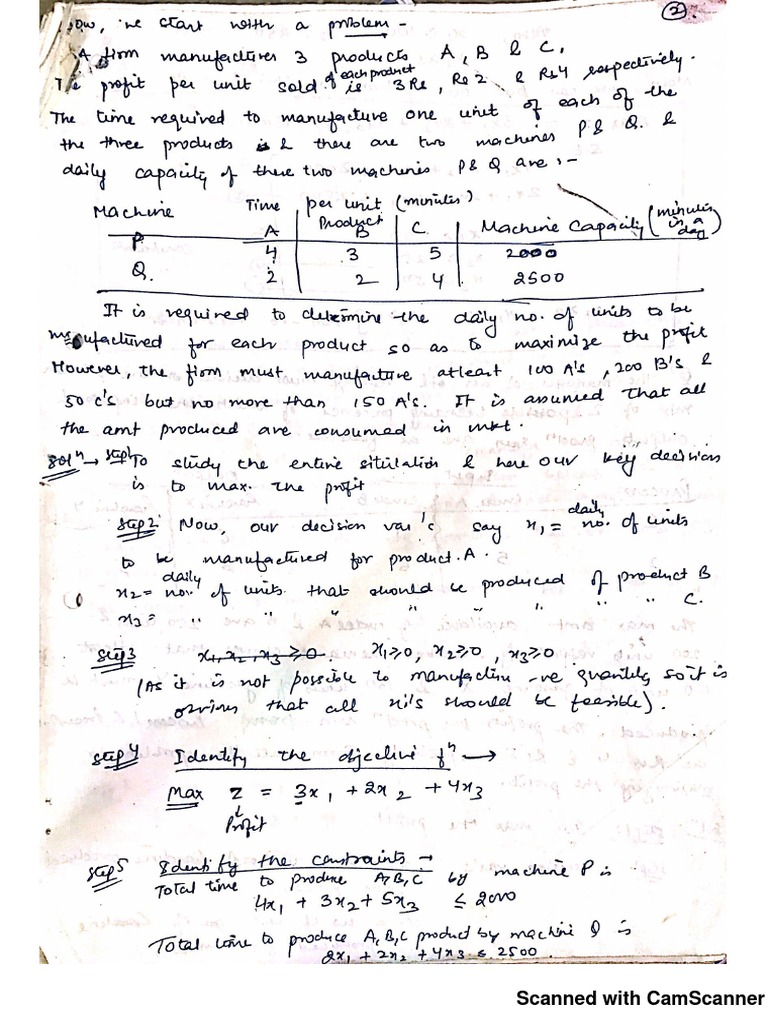 ②
Now, we start with a problem -
A firm manufactures 3 products A, B & C.
The profit per unit sold of each product is 3Rs, Rs 2 & Rs4 respectively.
The time required to manufacture one unit of each of the
the three products is & there are two machines P & Q. &
daily capacity of these two machines P & Q are :-
Machine Time per unit (minutes) Machine Capacity (minutes in a day)
Product
A B C.
P 4 3 5 2000
Q. 2 2 4 2500
It is required to determine the daily no. of units to be
manufactured for each product so as to maximize the profit
However, the firm must manufacture atleast 100 A's, 200 B's &
50 c's but no more than 150 A's. It is assumed that all
the amt produced are consumed in mkt.
Solⁿ → Step1 To study the entire situlation & here our key decision
is to max. the profit
Step2: Now, our decision var's say x₁ = daily no. of units
to be manufactured for product A.
x₂ = daily no. of units that should be produced of product B
x₃ = " " " " " " " C.
Step3 x₁, x₂, x₃ ≥ 0. x₁≥0, x₂≥0, x₃≥0
(As it is not possible to manufacture -ve quantity so it is
obvious that all xi's should be feasible).
Step4 Identify the objective fⁿ →
Max Z = 3x₁ + 2x₂ + 4x₃
↓
Profit
Step5 Identify the constraints →
Total time to produce A,B,C by machine P is
4x₁ + 3x₂ + 5x₃ ≤ 2000
Total time to produce A,B,C product by machine Q is
2x₁ + 2x₂ + 4x₃ ≤ 2500.
Scanned with CamScanner